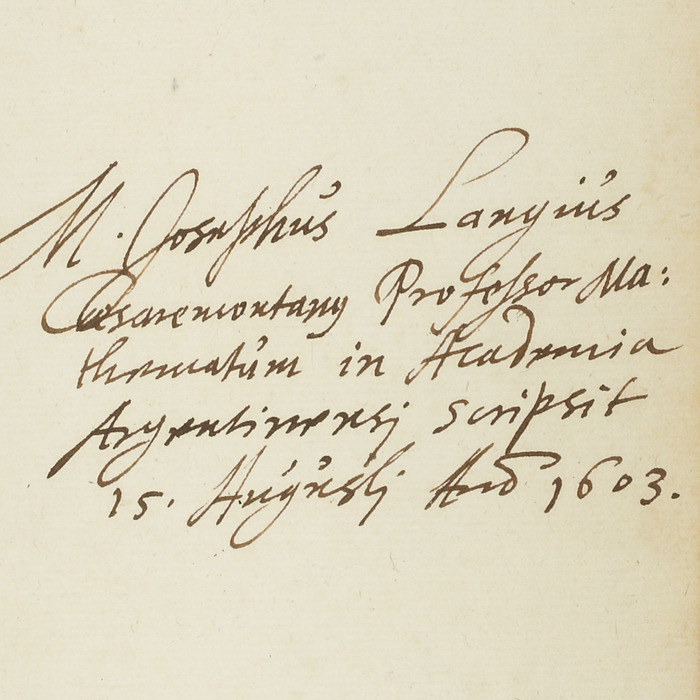 M. Josephus Langius
Caesaremontanus Professor Ma:
thematum in Academia
Argentinensi scripsit
15. Augusti Anō 1603.